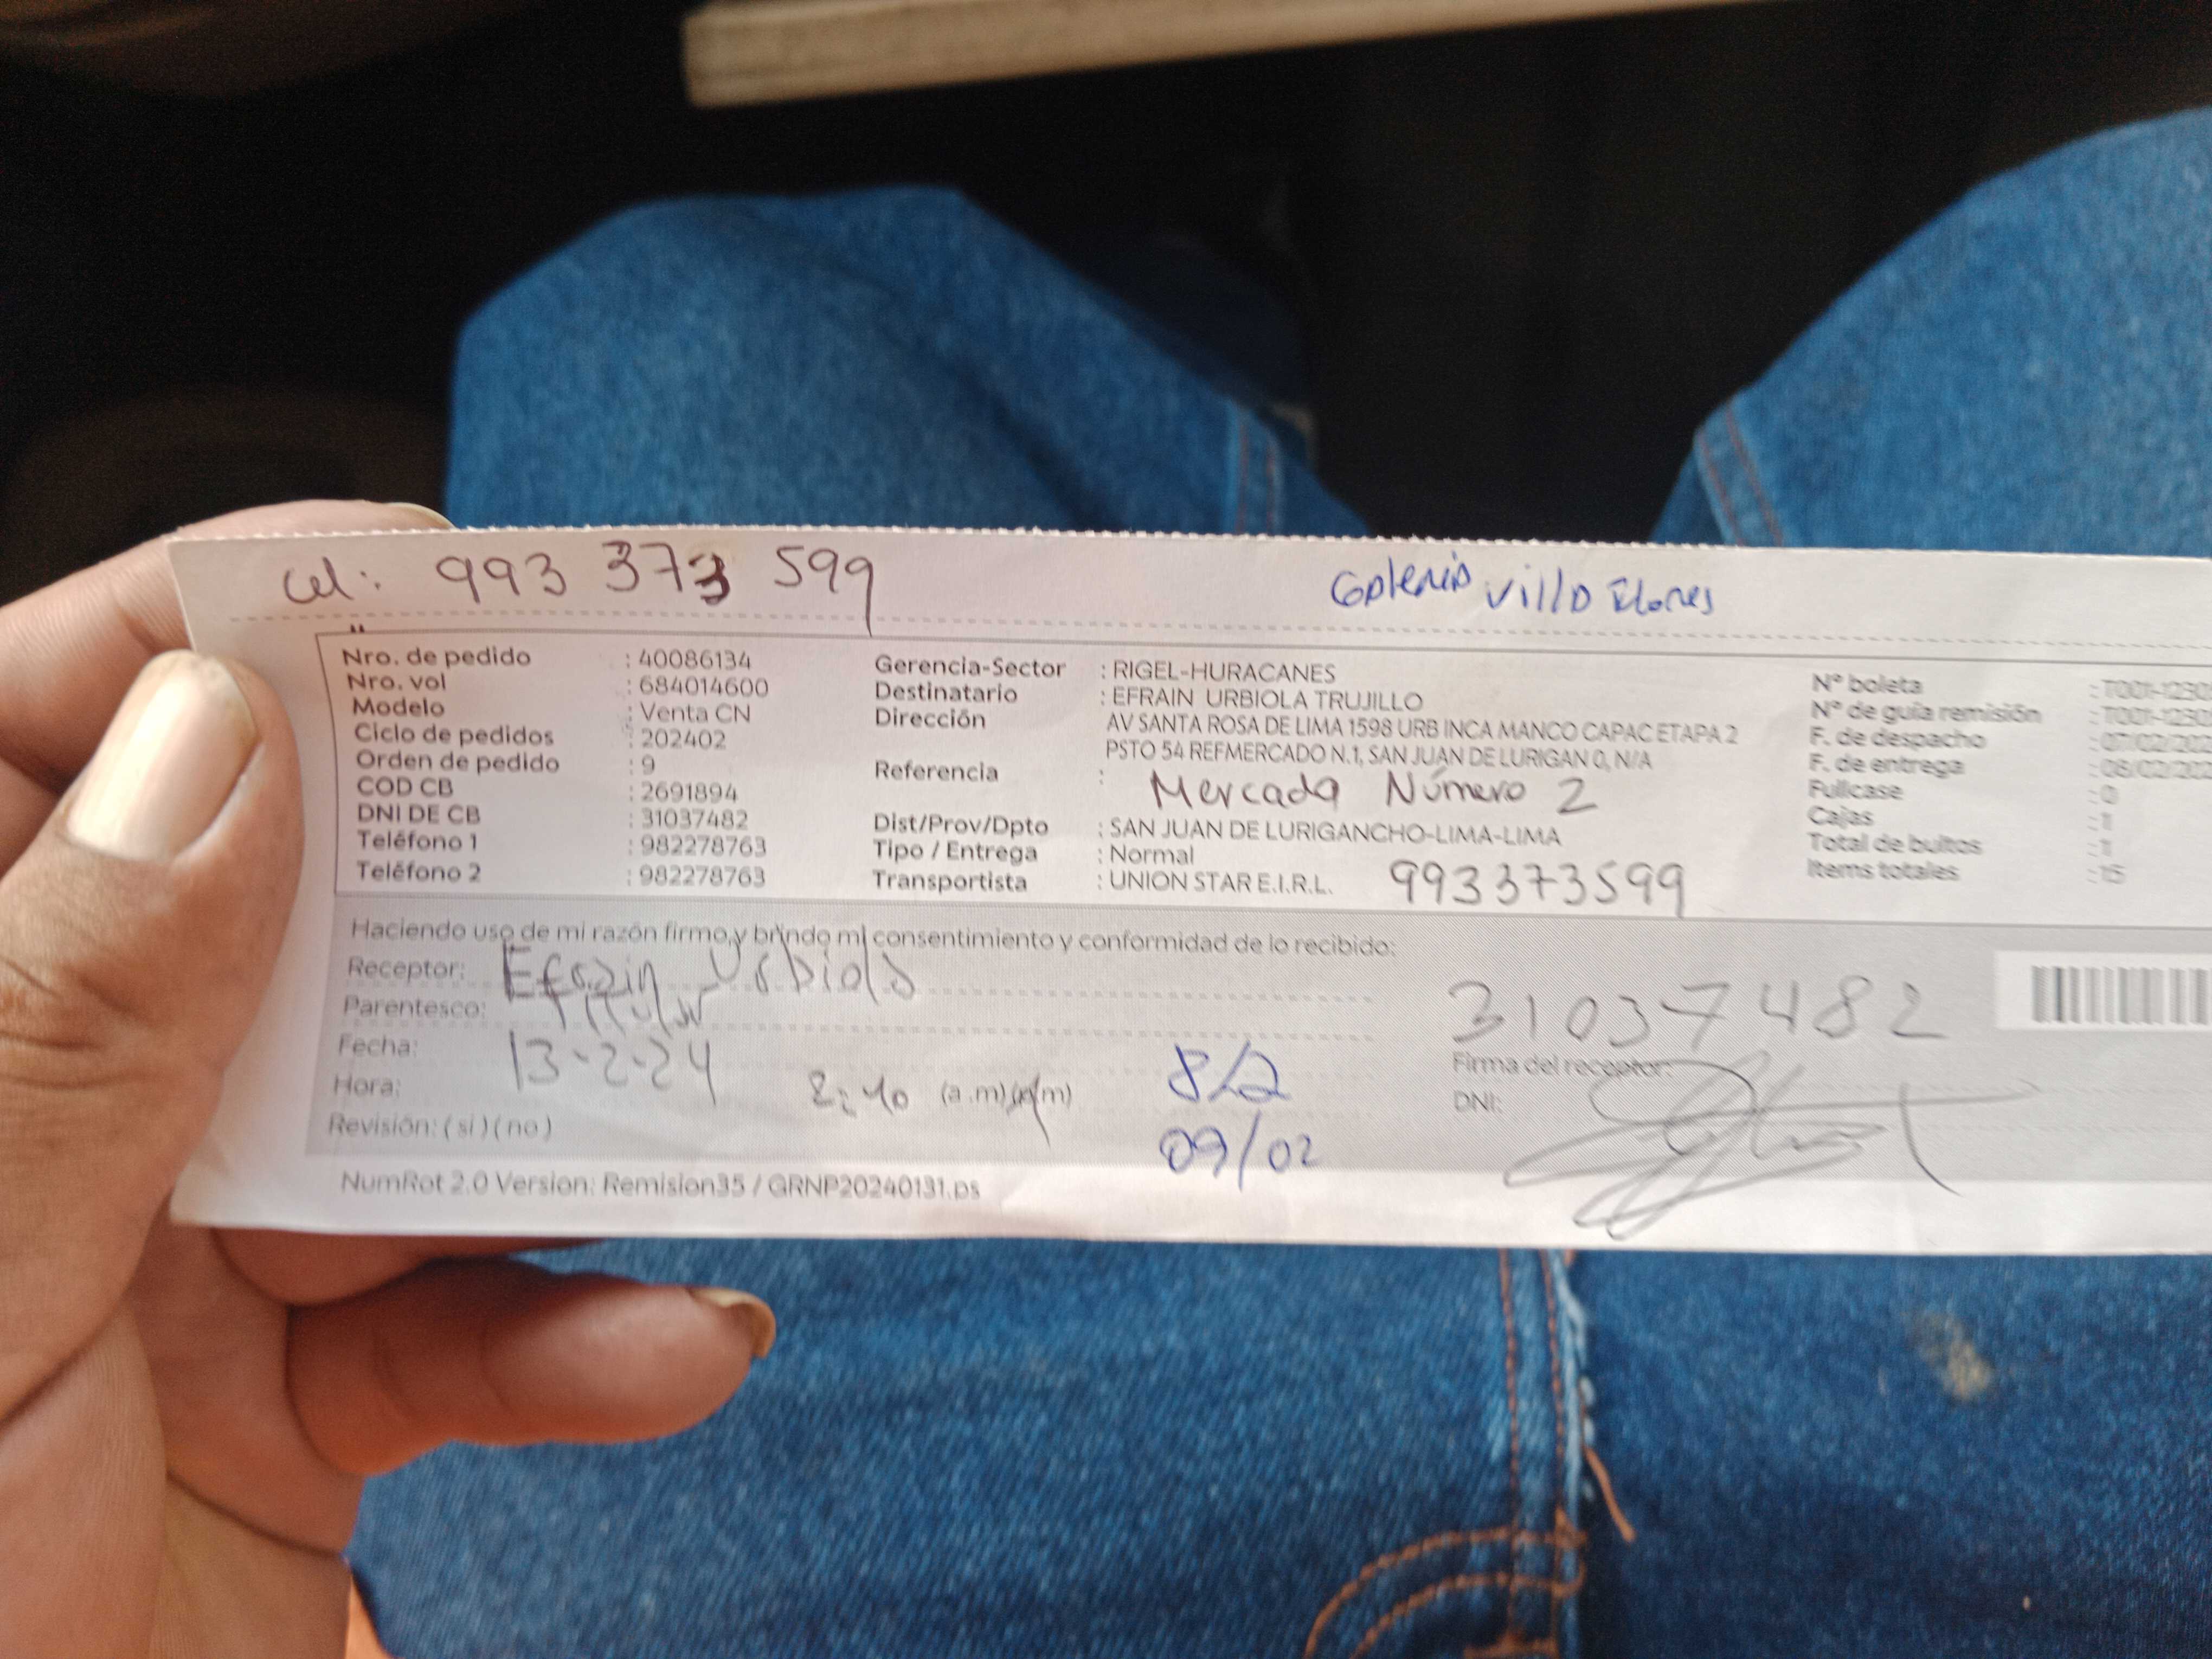 cel: 993 373 599
Galeria Villa Flores
Nro. de pedido : 40086134
Nro. vol : 684014600
Modelo : Venta CN
Ciclo de pedidos : 202402
Orden de pedido : 9
COD CB : 2691894
DNI DE CB : 31037482
Teléfono 1 : 982278763
Teléfono 2 : 982278763
Gerencia-Sector : RIGEL-HURACANES
Destinatario : EFRAIN URBIOLA TRUJILLO
Dirección AV SANTA ROSA DE LIMA 1598 URB INCA MANCO CAPAC ETAPA 2
PSTO 54 REFMERCADO N.1, SAN JUAN DE LURIGAN 0, N/A
Referencia : Mercado Número 2
Dist/Prov/Dpto : SAN JUAN DE LURIGANCHO-LIMA-LIMA
Tipo / Entrega : Normal
Transportista : UNION STAR E.I.R.L. 993373599
N° boleta : T001-1230
N° de guía remisión : T001-1230
F. de despacho : 07/02/202
F. de entrega : 08/02/202
Fullcase : 0
Cajas : 1
Total de bultos : 1
Items totales : 15
Haciendo uso de mi razón firmo y brindo mi consentimiento y conformidad de lo recibido:
Receptor: Efrain Urbiola
Parentesco: Titular
Fecha: 13-2-24
Hora: 2:40 (a.m)(p.m)
Revisión: (si)(no)
8/2
09/02
31037482
Firma del receptor:
DNI:
NumRot 2.0 Version: Remision35 / GRNP20240131.ps